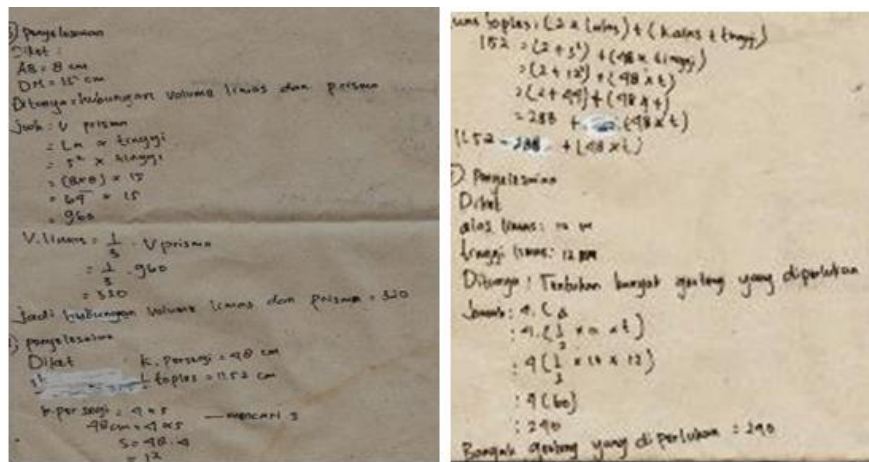 Penyelesaian
Diket :
AB = 8 cm
DM = 15 cm
Ditanya = hubungan volume limas dan prisma
Jwb : V prisma
= La x tinggi
= s² x tinggi
= (8x8) x 15
= 64 x 15
= 960
V. limas = 1/3 . V prisma
= 1/3 . 960
= 320
Jadi hubungan volume limas dan prisma = 320
Penyelesaian
Diket k. persegi = 48 cm
L toplas = 1152 cm
k. persegi = 4 x s
48 cm = 4 x s — mencari s
s = 48 : 4
= 12
Luas toplas : (2 x Lalas) + (kalas x tinggi)
1152 = (2 + s²) + (48 x tinggi)
= (2 + 12²) + (48 x t)
= (2 + 44) + (48 x t)
= 288 + (48 x t)
1152 - 288 + (48 x t)
Penyelesaian
Diket
alas limas : 10 m
tinggi limas : 12 m
Ditanya : Tentukan banyak genteng yang diperlukan
Jawab : 4. L
: 4. (1/2 x a x t)
: 4 (1/2 x 10 x 12)
: 4 (60)
: 240
Banyak genteng yang diperlukan : 240